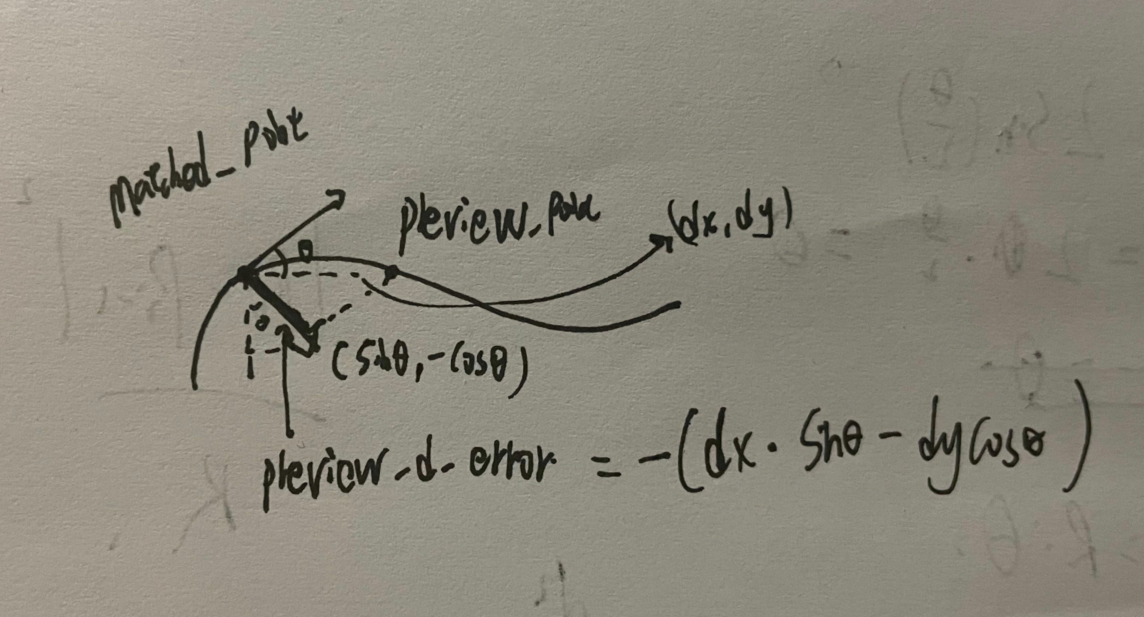 matched_point
preview_point
(dx, dy)
θ
θ
(sinθ, -cosθ)
preview_d_error = -(dx · sinθ - dy cosθ)